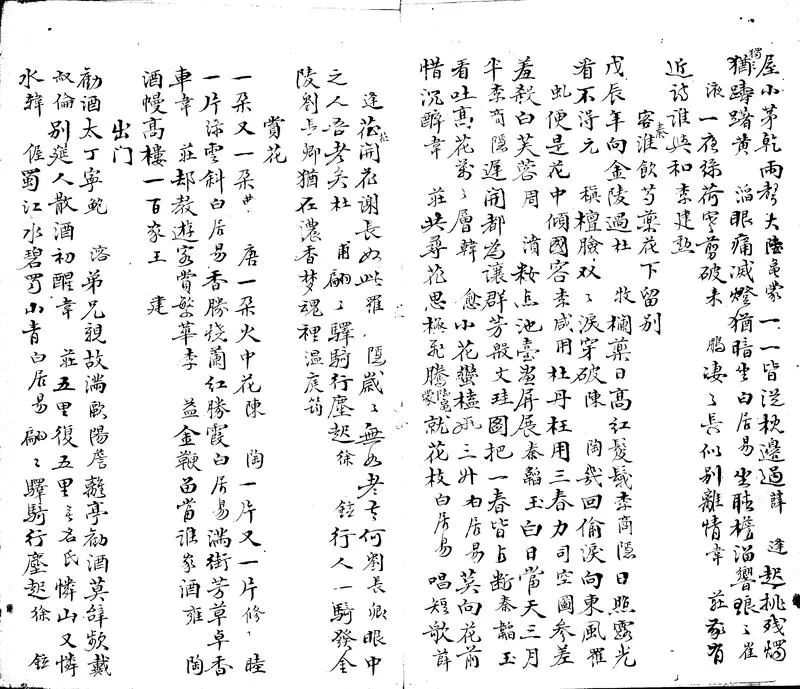 屋小茅乾雨声大陸龜蒙一一皆従枕邊過薛 逢起挑残燭
獨猶躊躇黄 滔眼痛滅燈猶暗坐白居易坐睡檐溜響琅〻崔
液一夜绿荷霜剪破来 鵬凄〻長似别離情韋 莊家省
近诗誰與和李建勲
客淮秦飲芍藥花下留别
戊辰年向金陵過杜 牧欄藥日高红髲髢李商隱日照露光
看不得元 稹檀臉双〻淚穿破陳 陶幾回偷淚向東風羅
虬便是花中傾國容李咸用杜丹枉用三春力司空圖參差
羞殺白芙蓉周 濆妝点池臺畫屏展秦韜玉白日當天三月
半李商隱遲開都為讓群芳殷文珪圖把一春皆占断秦韜玉
看吐高花萬〻層韓 愈小花蠻榼三升白居易莫向花前
惜沉醉韋 莊共尋花思極飛騰陸龜蒙就花枝白居易唱短歌薛
逢花開花謝長如此羅 隱歲〻無如老去何劉長卿眼中
之人吾老矣杜 甫翩〻驛騎行塵起徐 鉉行人一騎發金
陵劉長卿猶在濃香梦魂裡温庭筠
賞花
一朵又一朵曲 唐一朵火中花陳 陶一片又一片修〻睦
一片添雲斜白居易香勝烧蘭红勝霞白居易满街芳草卓香
車韋 莊却教遊客賞繁華李 益金鞭留當誰家酒雍 陶
酒幔高樓一百家王 建
出门
勸酒太丁寧鮑 溶弟兄親故满歐陽詹離亭勸酒莫辞頻戴
叔倫别筵人散酒初醒韋 莊五里復五里无名氏憐山又憐
水韓 偓蜀江水碧蜀山青白居易翩〻驛騎行塵起徐 鉉